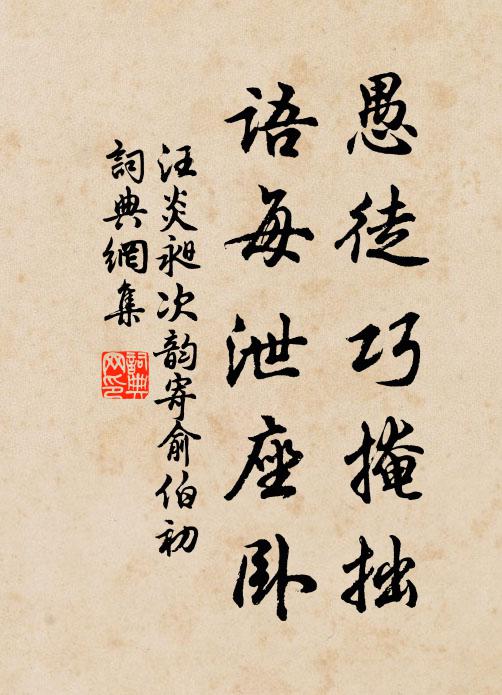 愚徒巧掩拙
語每泄座卧
汪炎昶次韵寄俞伯初
詞典網集
詞典網印